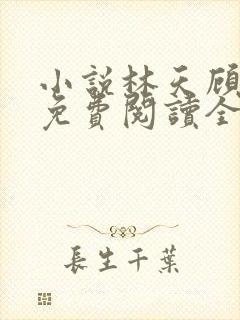 小說林天顧
免費閱讀全
長生千葉